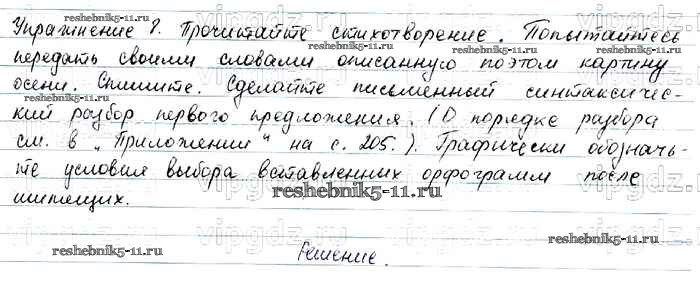 Упражнение 8. Прочитайте стихотворение. Попытайтесь
передать своими словами описанную поэтом картину
осени. Спишите. Сделайте письменный синтаксичес-
кий разбор первого предложения. (О порядке разбора
см. в „Приложении" на с. 205.). Графически обозначь-
те условия выбора вставленных орфограмм после
шипящих.
Решение.
reshebnik5-11.ru
reshebnik5-11.ru
reshebnik5-11.ru
reshebnik5-11.ru
reshebnik5-11.ru
reshebnik5-11.ru
vipgdz.ru
vipgdz.ru
vipgdz.ru
vipgdz.ru